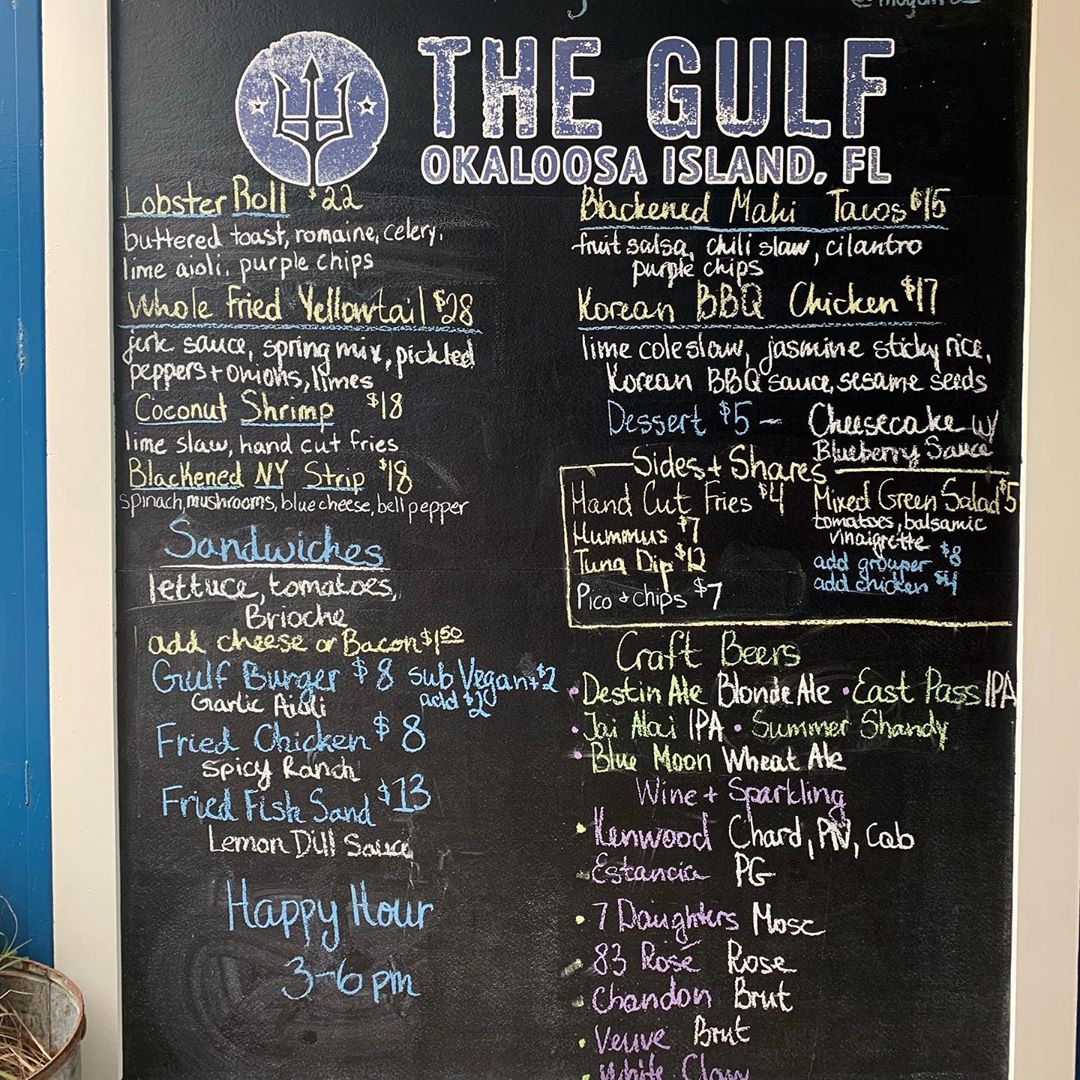 THE GULF
OKALOOSA ISLAND, FL
Lobster Roll $22
buttered toast, romaine, celery,
lime aioli, purple chips
Whole Fried Yellowtail $28
jerk sauce, spring mix, pickled
peppers + onions, limes
Coconut Shrimp $18
lime slaw, hand cut fries
Blackened NY Strip $18
spinach, mushrooms, blue cheese, bell pepper
Sandwiches
lettuce, tomatoes,
Brioche
add cheese or Bacon $1.50
Gulf Burger $8 sub Vegan + $2
Garlic Aioli
Fried Chicken $8
Spicy Ranch
Fried Fish Sand $13
Lemon Dill Sauce
Happy Hour
3-6 pm
Blackened Mahi Tacos $15
fruit salsa, chili slaw, cilantro
purple chips
Korean BBQ Chicken $17
lime coleslaw, jasmine sticky rice,
Korean BBQ sauce, sesame seeds
Dessert $5 - Cheesecake w/
Blueberry Sauce
Sides + Shares
Hand Cut Fries $4
Hummus $7
Tuna Dip $12
Pico + chips $7
Mixed Green Salad $5
tomatoes, balsamic
vinaigrette
add grouper $8
add chicken $4
Craft Beers
• Destin Ale Blonde Ale • East Pass IPA
• Jai Alai IPA • Summer Shandy
• Blue Moon Wheat Ale
Wine + Sparkling
• Kenwood Chard, PN, Cab
• Estancia PG
• 7 Daughters Mosc
• 83 Rosé Rose
• Chandon Brut
• Veuve Brut
• White Claw